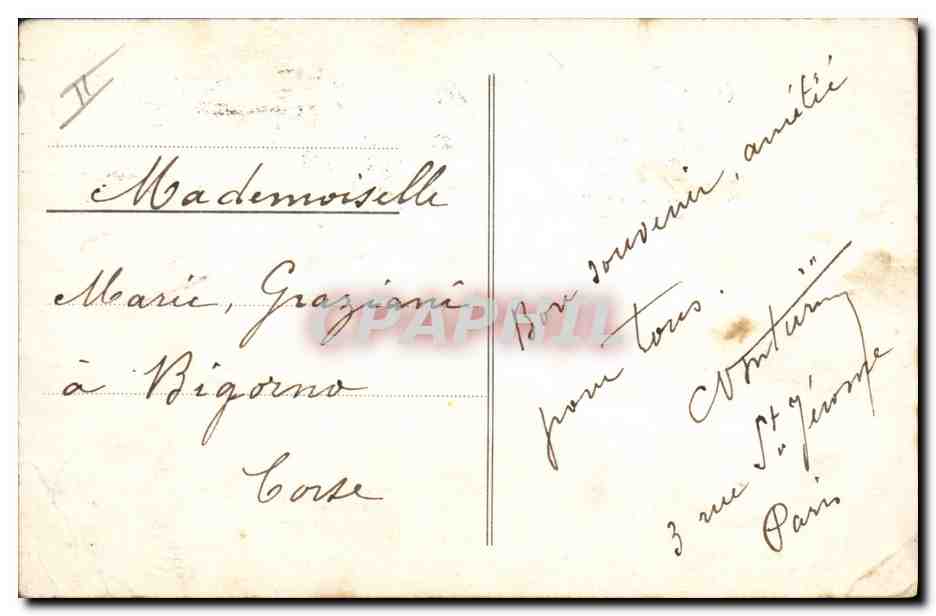 II
Mademoiselle
Marie, Graziani
à Bigorno
Corse
CPAPHIL
Bon souvenir, amitié
pour tous.
3 rue St. Jérome
Paris